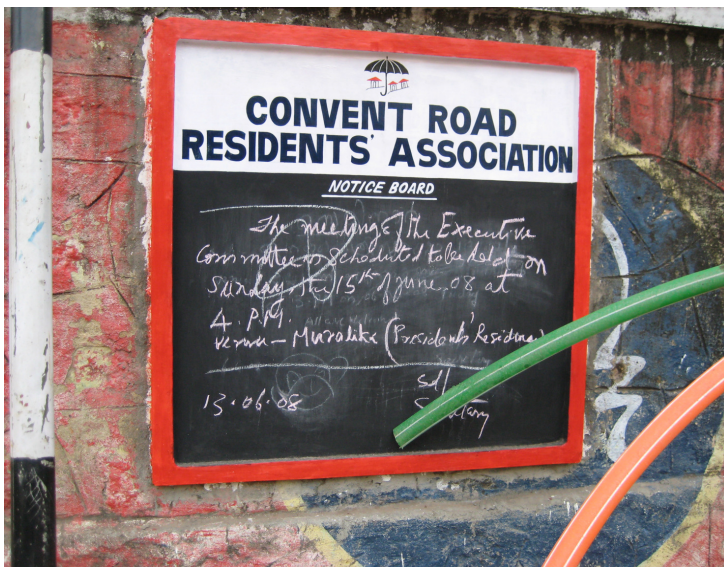 CONVENT ROAD
RESIDENTS' ASSOCIATION
NOTICE BOARD
The meeting of the Executive
Committee is scheduled to be held on
Sunday, the 15th of June 08 at
4. P.M.
Venue - Muralika (Presidents' Residence)
Sd/
Secretary
13.06.08